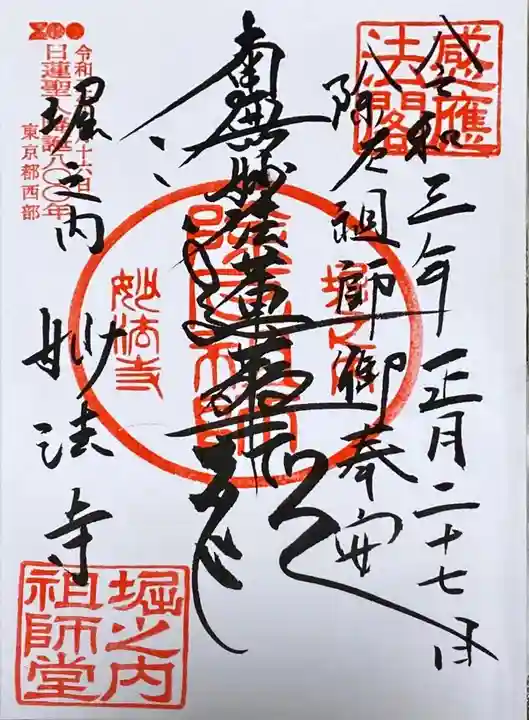 令和三年正月二十七日
除厄祖師御奉安
南無妙法蓮華経
堀之内
妙法寺
感應
法閣
堀之内
除厄祖師
妙法寺
堀之内
祖師堂
日蓮聖人降誕八〇〇年
東京都西部